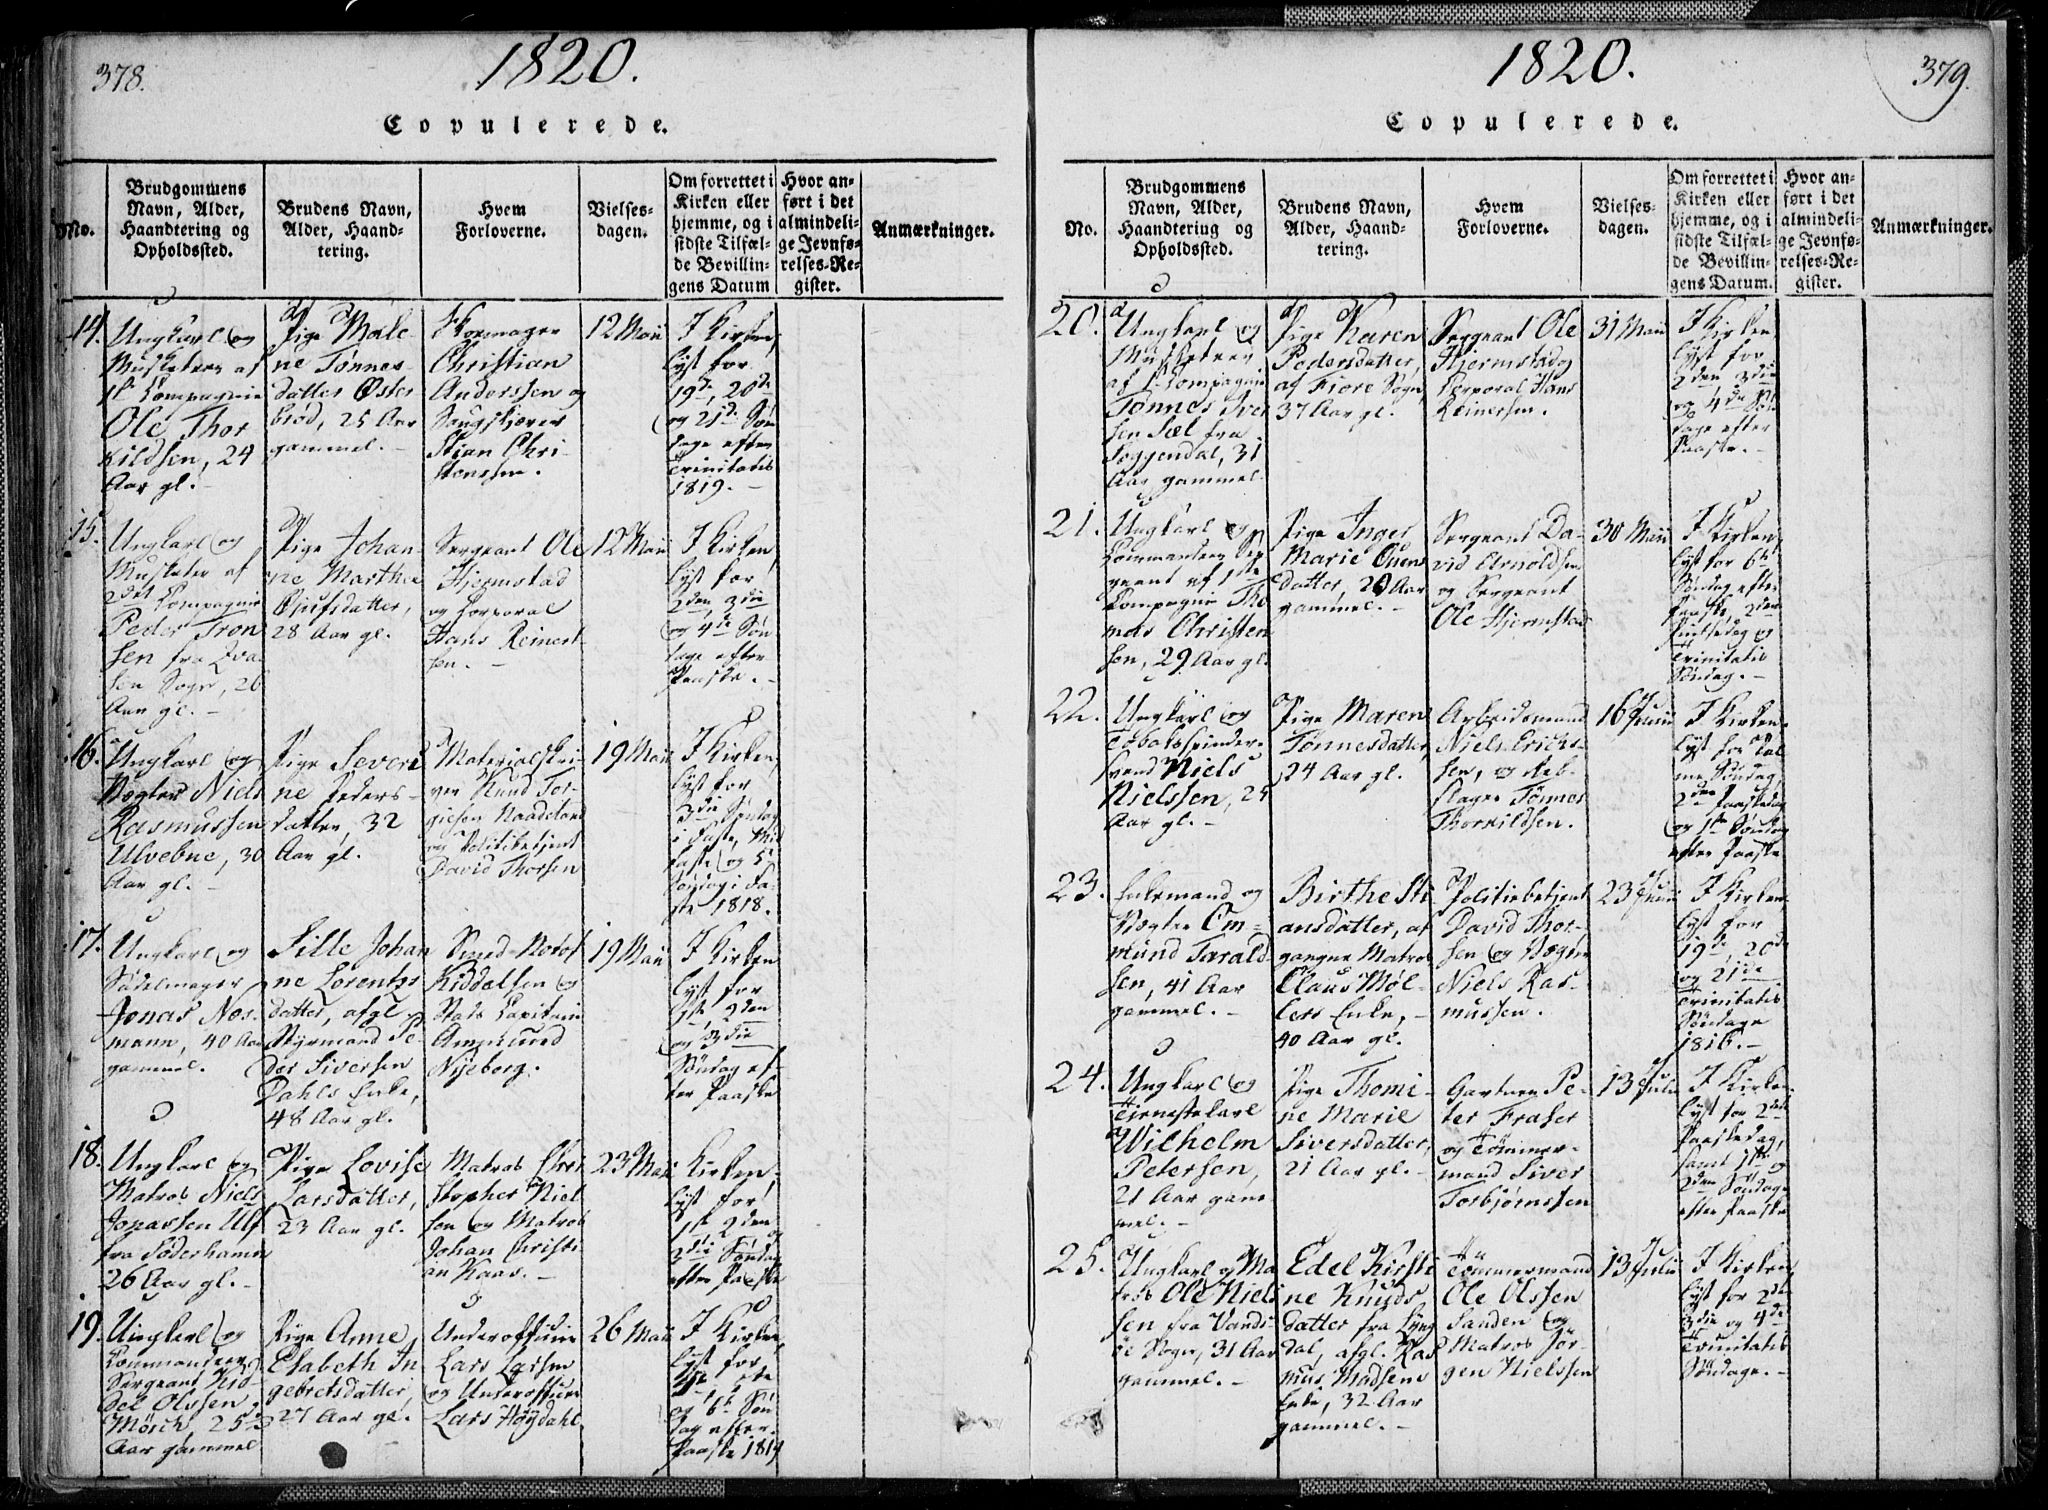 378.
1820.
Copulerede.
No.
Brudgommens
Navn, Alder,
Haandtering og
Opholdssted.
Brudens Navn,
Alder, Haand-
tering.
Hvem
Forloverne.
Vielses-
dagen.
Om forrettet i
Kirken eller
hjemme, og i
sidste Tilfæl-
de Bevillin-
gens Datum
Hvor an-
ført i det
almindeli-
ge Jevnfø-
relses-Re-
gister.
Anmærkninger.
14.
Ungkarl og
Musketeer af
1ste Compagnie
Ole Thor
kildsen, 24
Aar gl. -
Pige Male-
ne Tønnes-
datter Øster
brød, 25 Aar
gammel. -
Skomager
Christian
Anderssen og
Stian Chri-
stenssen.
12 Maii
I Kirken,
lyst for
19de, 20de
og 21de Søn
dage efter
Trinitatis
1819. -
15.
Ungkarl og
Musketer af
2det Compagnie
Peder Tron
sen fra Qva-
sen Sogn, 26
Aar gl. -
Pige Johan-
ne Marthe
Gjufsdatter,
28 Aar gl.
Sergeant Ole
Hjermstad
og Corporal
Hans Reinert
sen. -
12 Maii
I Kirken,
lyst for
2den, 3die
og 4de Søn
dage efter
Paaske. -
16.
Ungkarl og
Vægter Niels
Rasmussen
Ulvebne, 30
Aar gl. -
Pige Severi
ne Peders-
datter, 32
Aar gl.
Materialskri-
ver Knud Tor-
giesen Naadeland
og Politibetjent
David Thorsen
19 Maii
I Kirken,
lyst for
3die Søndag
i Faste, Mid
faste og 5te
Søndag i Fa-
ste 1818.
17.
Ungkarl og
Sadelmager
Jonas Nor-
mann, 40 Aar
gammel.
Sille Johan
ne Lorentz-
datter, afgl.
Styrmand Pe-
der Siversen
Dahls Enke,
48 Aar gl.
Smed
Kiddelsen og
Stads Capitain
Ammund
Nyeborg.
19 Maii
I Kirken
lyst for
1ste, 2den
og 3die
Søndag ef-
ter Paaske
18.
Ungkarl og
Matros Niels
Jonassen Ulf
fra Söderhamn
26 Aar gl. -
Pige Lovise
Larsdatter,
23 Aar gl.
Matros Chri
stopher Niel
sen og Matros
Johan Christi
an Kaas. -
23 Maii
I Kirken,
lyst for
1ste, 2den og
3die Søndag
efter Paaske
19.
Ungkarl og
Commandeer
Sergeant
Olssen
Mørch, 25
Aar gammel
Pige Anne
Elsabeth In
gebretsdatter,
27 Aar gl.
Underofficeer
Lars Larsen
og Underofficeer
Lars Høydahl
26 Maii
I Kirken,
lyst for
og 6te Søn
dag efter
Paaske 1819
1820.
379.
Copulerede.
No.
Brudgommens
Navn, Alder,
Haandtering og
Opholdssted.
Brudens Navn,
Alder, Haand-
tering.
Hvem
Forloverne.
Vielses-
dagen.
Om forrettet i
Kirken eller
hjemme, og i
sidste Tilfæl-
de Bevillin-
gens Datum.
Hvor an-
ført i det
almindeli-
ge Jevnfø-
relses-Re-
gister.
Anmærkninger.
20.
Ungkarl og
Musketeer
af 1ste Compagnie
Tønnes Iver
sen Sæl fra
Soggendal, 31
Aar gammel.
Pige Karen
Pedersdatter,
af Fiore Sogn
37 Aar gl.
Sergeant Ole
Hjermstad og
Corporal Hans
Reinersen.
31 Maii
I Kirken
lyst for
2den 3die
og 4de Søn
dage efter
Paaske. -
21.
Ungkarl og
Commandeer Ser
geant af 1ste
Compagnie Tho
mas Christen
sen, 29 Aar gl.
Pige Inger
Marie Ouens
datter, 20 Aar
gammel. -
Sergeant Da-
vid Arnoldsen
og Sergeant
Ole Hjermstad
30 Maii
I Kirken,
lyst for 6te
Søndag efter
Paaske, 2den
Pintsedag og
Trinitatis
Søndag. -
22.
Ungkarl og
Tobaksspinder-
svend Niels
Nielssen, 25
Aar gl. -
Pige Maren
Tønnesdatter,
24 Aar gl.
Arbeidsmand
Niels Erichs-
sen, og Reb-
slager Tønnes
Thorkildsen.
16 Junii
I Kirken.
lyst for Pal
me Søndag,
2den Paaskedag
og 1ste Søndag
efter Paaske
23.
Enkemand og
Vægter Om-
mund Tarald-
sen, 41 Aar
gammel. -
Birthe Sti
ansdatter, af
gangne Matros
Claus Møl-
lers Enke, -
40 Aar gl.
Politiebetjent
David Thor-
sen og Vægter
Niels Ras-
mussen.
23 Junii
I Kirken
lyst for
19de, 20de
og 21de
Trinitatis
Søndage
1816. -
24.
Ungkarl og
Tjenestekarl
Wilhelm
Petersen,
21 Aar gam
mel. -
Pige Thomi-
ne Marie
Siversdatter,
21 Aar gl. -
Gartner Pe-
ter Fraser
og Tømmer-
mand Siver
Torbjørnssen
13 Julii
I Kirken
lyst for 2den
Paaskedag,
samt 1ste og
2den Søndage
efter Paaske
25.
Ungkarl og Ma
tros Ole Niels
sen fra Vands
øe Sogn, 31 Aar
gammel. -
Edel Kirsti
ne Knuds
datter fra Lyng
dal, afgl. Ras
mus Madsens
Enke, 32 Aar
gammel. -
Tømmermand
Ole Olssen
Sanden og
Matros Jør-
gen Nielssen
13 Julii
I Kirken
lyst for 2den
3die og 4de
Trinitatis
Søndage. -